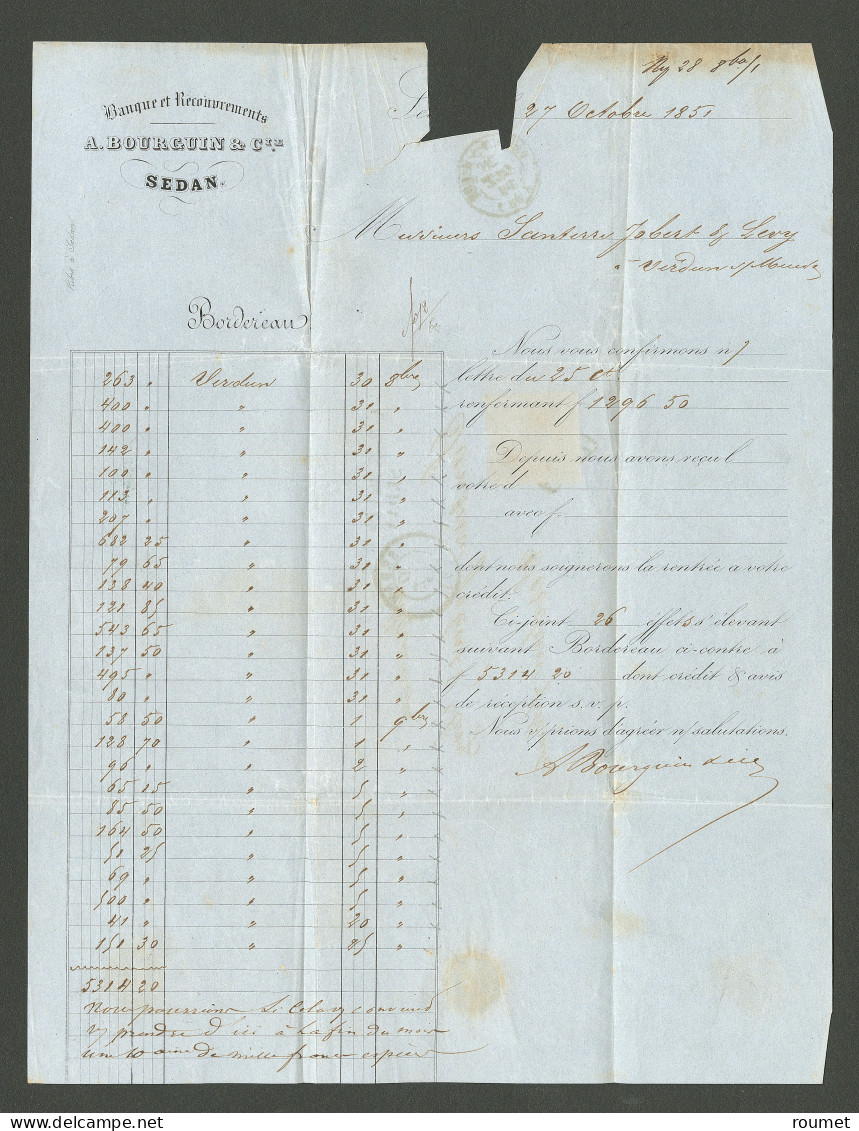 Ry 28 8bre/1
27 Octobre 1851
Banque et Recouvrements
A. BOURGUIN & CIE
SEDAN.
Messieurs Santerre Jobert & Levy
à Verdun s/Meuse
Bordereau
263 " Verdun 30 8bre
400 " " 31 "
400 " " 31 "
142 " " 31 "
100 " " 31 "
113 " " 31 "
207 " " 31 "
682 25 " 31 "
79 65 " 31 "
138 40 " 31 "
121 85 " 31 "
543 65 " 31 "
137 50 " 31 "
495 " " 31 "
80 " " 31 "
58 50 " 1 9bre
128 70 " 1 "
96 " " 2 "
65 15 " 5 "
85 50 " 5 "
164 50 " 5 "
51 25 " 5 "
69 " " 5 "
500 " " 5 "
41 " " 20 "
151 30 " 25 "
5314 20
Nous pourrions si cela v/ convient
y prendre d'ici à la fin du mois
une 10aine de mille francs espèces
Nous vous confirmons n/
lettre du 25 Ct
renfermant f 1296 50
Depuis nous avons reçu l
votre d
avec f.
dont nous soignerons la rentrée a votre
crédit.
Ci-joint 26 effets s'élevant
suivant Bordereau ci-contre à
f 5314 20 dont crédit & avis
de réception s.v.p.
Nous v/prions d'agréer n/salutations.
A Bourguin & Cie
roumet
www.delcampe.net